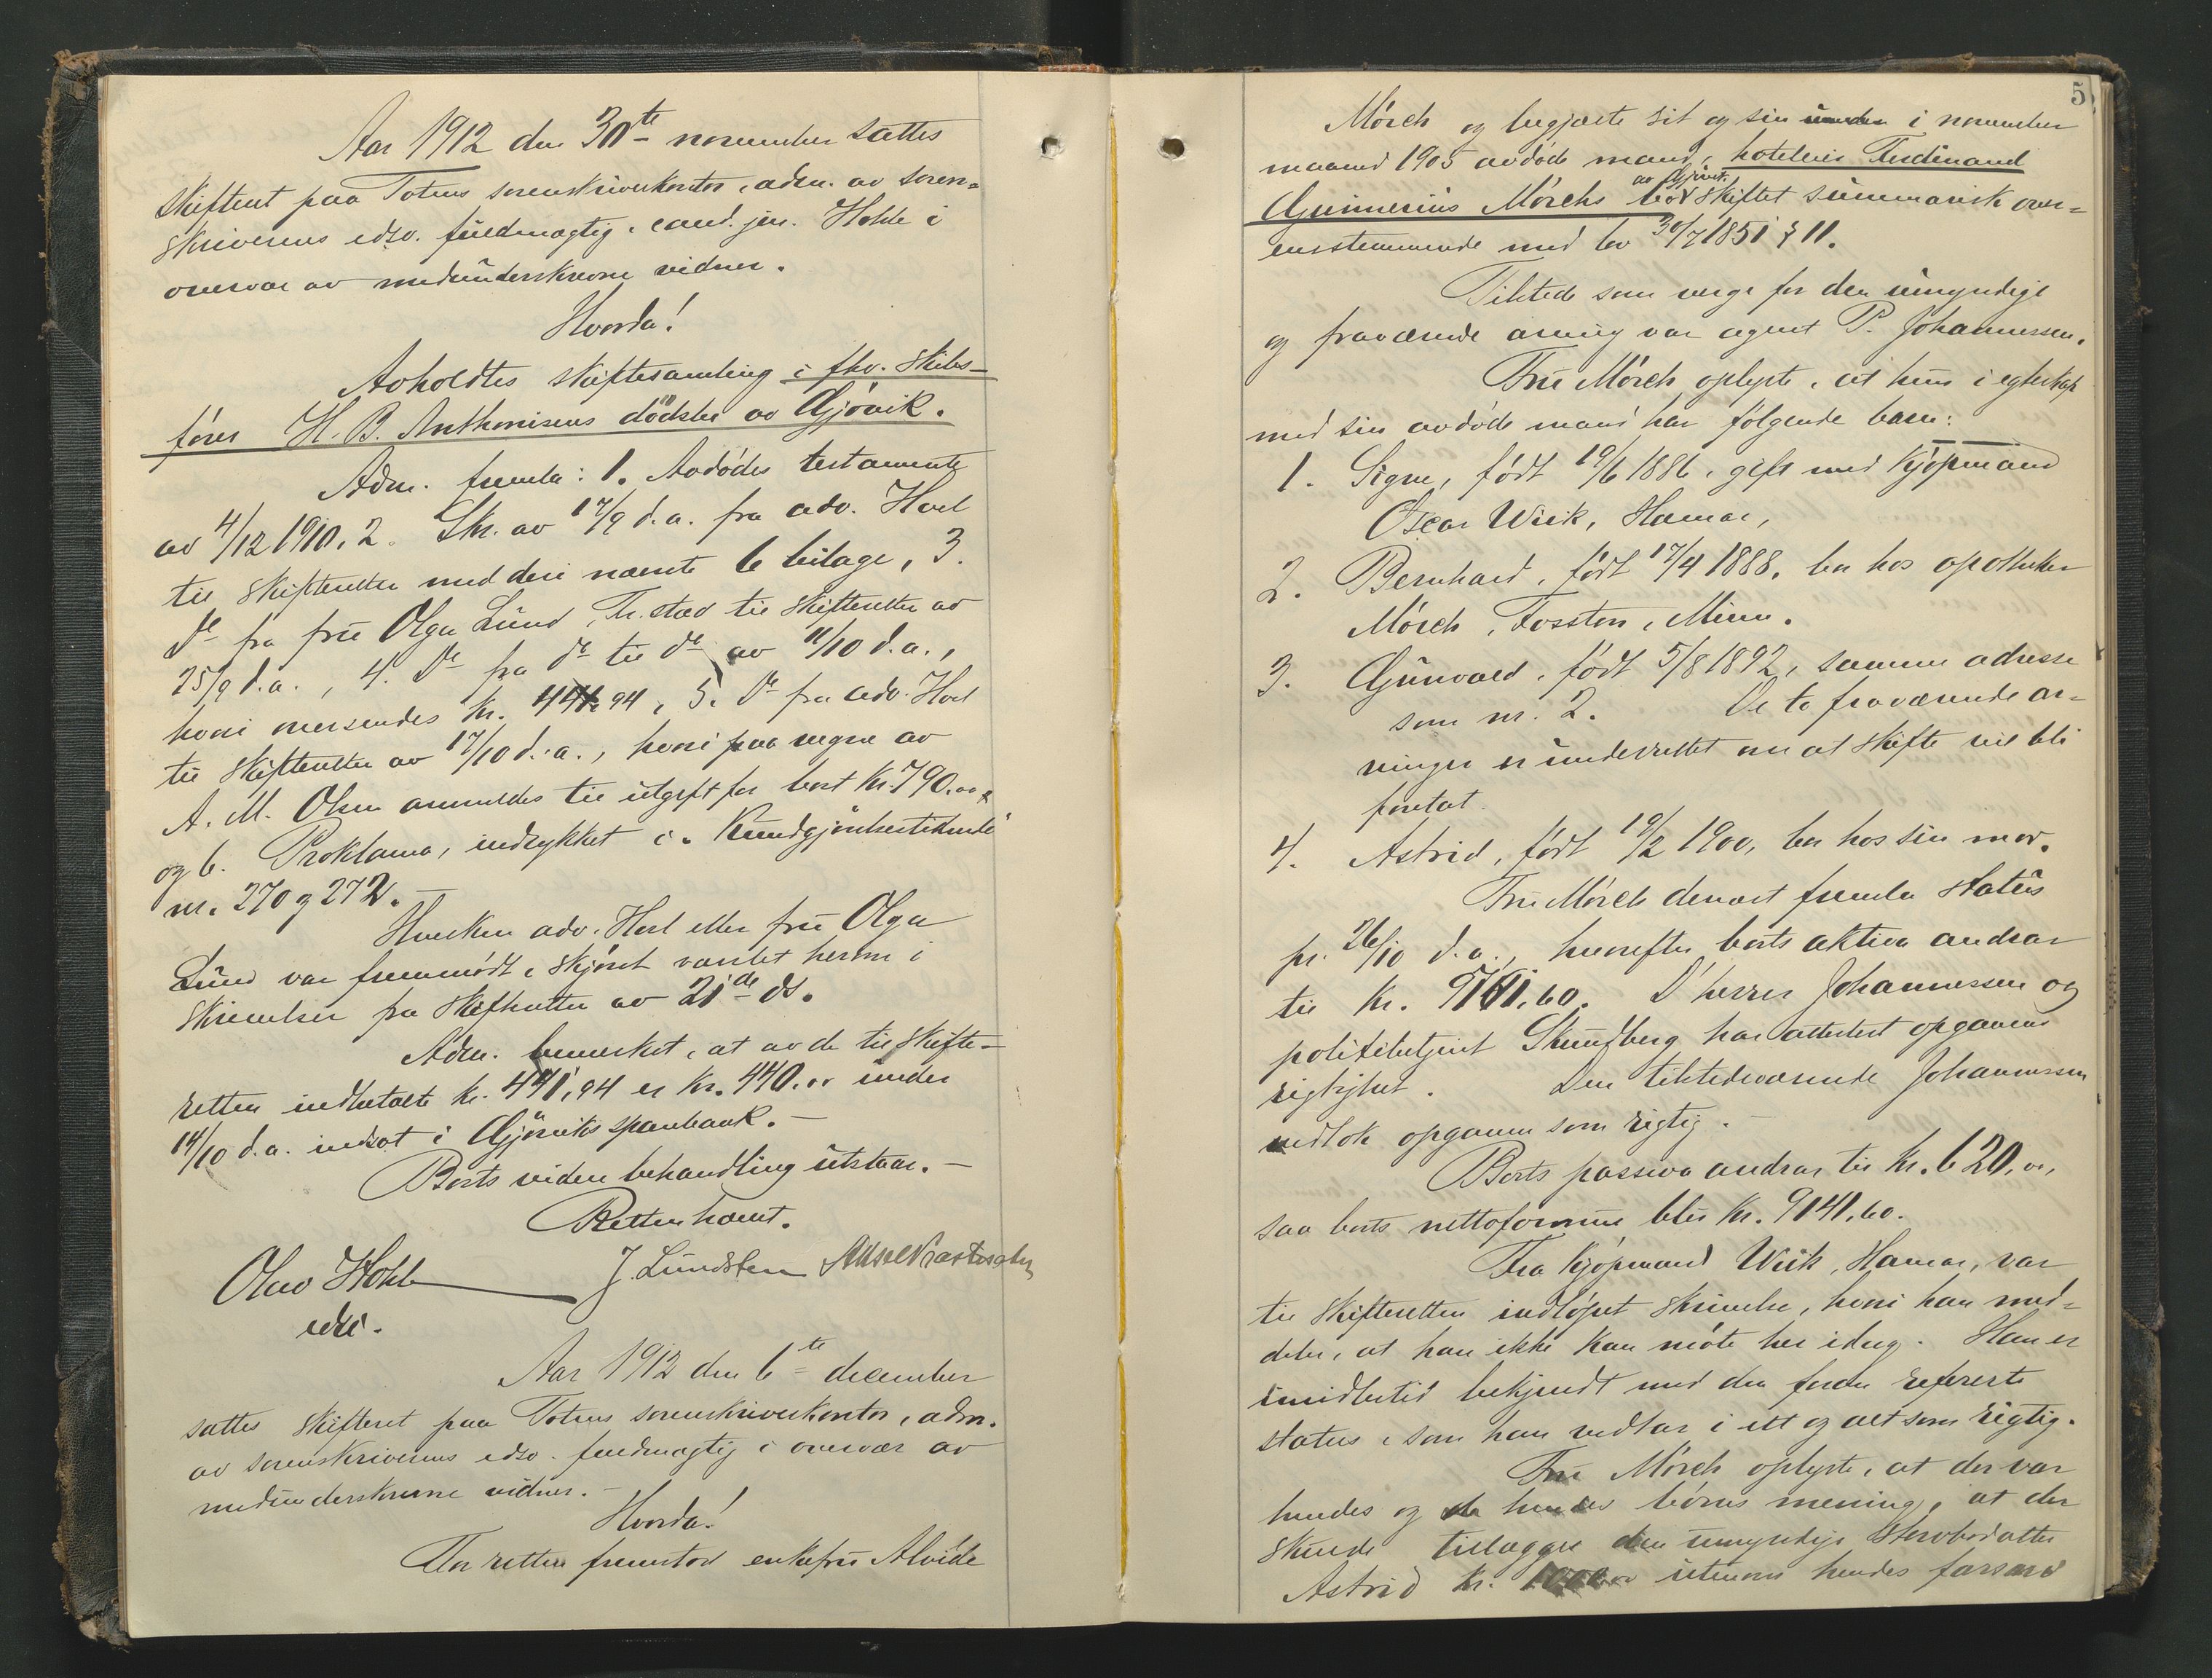 Aar 1912 den 30te november sattes
skifteret paa Totens sorenskriverkontor, adm. av soren-
skriverens edsv. fuldmægtig, cand. jur. Hohle i
overvær av medunderskrevne vidner.
Hvorda!
Avholdtes skiftesamling i fhv. skibs-
fører H. B. Anthonisens dødsbo av Gjøvik.
Adm. fremla: 1. Avdødes testamente
av 4/12 1910, 2. Skr. av 17/9 d.a. fra adv. Hoel
til skifteretten med deri nævnte 6 bilage, 3.
Do fra frue Olga Lund, Tr.stad til skifteretten av
25/9 d.a., 4. Do fra do til do av 11/10 d.a.,
hvori oversendes kr. 441,94, 5. Do fra adv. Hoel
til skifteretten av 17/10 d.a., hvori paa vegne av
A. M. Olsen anmeldes til utgift for boet kr. 790.00
og 6. Proklama, indrykket i "Kundgjørelsestidende"
nr. 270 og 272. —
Hverken adv. Hoel eller frue Olga
Lund var fremmødt, skjønt varslet herom i
skrivelser fra skifteretten av 21de ds.
Adm. bemerket, at av de til skifte-
retten indbetalte kr. 441,94 er kr. 440.00 under
14/10 d.a. indsat i Gjøviks sparebank. —
Boets videre behandling utstaar. —
Retten hævet.
Olav Hohle J. Lundsten Aksel
edsv.
Aar 1912 den 6te december
sattes skifteret paa Totens sorenskriverkontor, adm.
av sorenskriverens edsv. fuldmægtig i overvær av
medunderskrevne vidner. —
Hvorda!
For retten fremstod enkefrue Alvide
5
Mørch og begjærte sit og sin i november
maaned 1905 avdøde mand, hoteleier Ferdinand
av Gjøvik
Gunnerius Mørchs bo skiftet summarisk over-
ensstemmende med lov 30/7 1851 § 11.
Tilstede som verge for den umyndige
og fraværende arving var agent P. Johannessen.
Frue Mørch oplyste, at hun i egteskap
med sin avdøde mand har følgende barn:
1. Signe, født 19/6 1886, gift med kjøpmand
Oscar Wiik, Hamar,
2. Bernhard, født 17/4 1888, bor hos apotheker
Mørch, Fosston, Minn.
3. Gunvald, født 5/8 1892, samme adresse
som nr. 2. De to fraværende ar-
vinger er underrettet om at skifte vil bli
foretat.
4. Astrid, født 19/2 1900, bor hos sin mor.
Frue Mørch dernæst fremla status
pr. 26/10 d.a., hvorefter boets aktiva andrar
til kr. 9761,60. D'herrer Johannessen og
politibetjent Skundberg har attestert opgavens
rigtighet. Den tilstedeværende Johannessen
vedtok opgaven som rigtig. —
Boets passiva andrar til kr. 620,00,
saa boets nettoformue blir kr. 9141,60.
Fra kjøpmand Wiik, Hamar, var
til skifteretten indløpet skrivelse, hvori han med-
deler, at han ikke kan møte her idag. Han er
imidlertid bekjendt med den foran refererte
status, som han vedtar i ett og alt som rigtig.
Frue Mørch oplyste, at der var
hendes og hendes børns mening, at der
skulde tillægges den umyndige stervbodatter
Astrid kr. 1000.00 utenom hendes farsarv